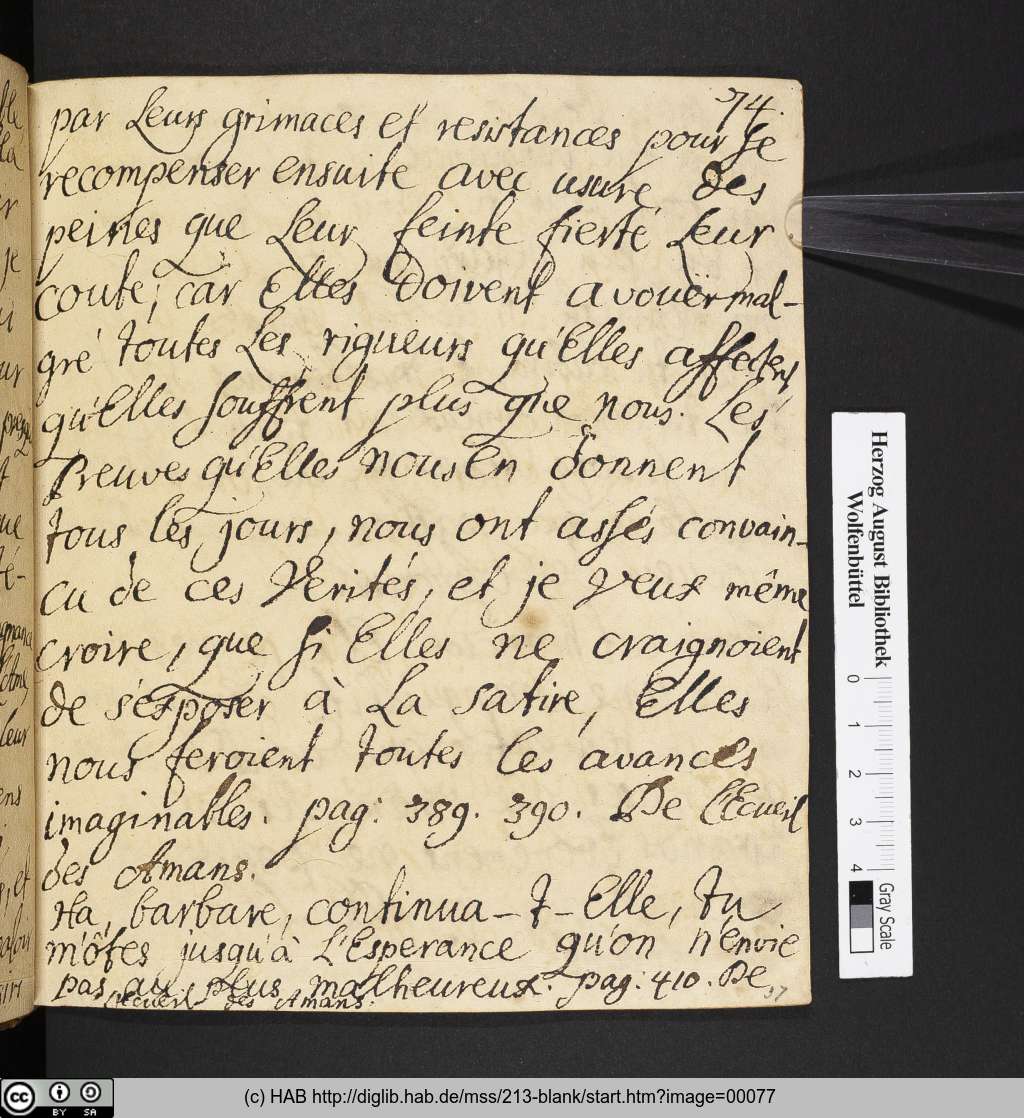 74.
par Leurs grimaces et resistances pour se
recompenser ensuite avec usure des
peines que Leur feinte fierté Leur
coute; car Elles doivent avouër mal-
gré toutes Les rigueurs qu'Elles affectent
qu'Elles souffrent plus que nous. Les
Preuves qu'Elles nous en donnent
tous les jours, nous ont assés convain-
cu de ces Verités, et je veux même
croire, que si Elles ne craignoient
de s'exposer à La satire, Elles
nous feroient toutes les avances
imaginables. pag: 389. 390. De l'Ecueil
des Amans.
Ha, barbare, continua-t-Elle, tu
m'ôtes jusqu'à L'Esperance qu'on n'envie
pas au plus malheureux. pag: 410. De
l'Ecueil des Amans.
37
Herzog August Bibliothek
Wolfenbüttel
0 1 2 3 4
Gray Scale
(c) HAB http://diglib.hab.de/mss/213-blank/start.htm?image=00077
cc BY SA